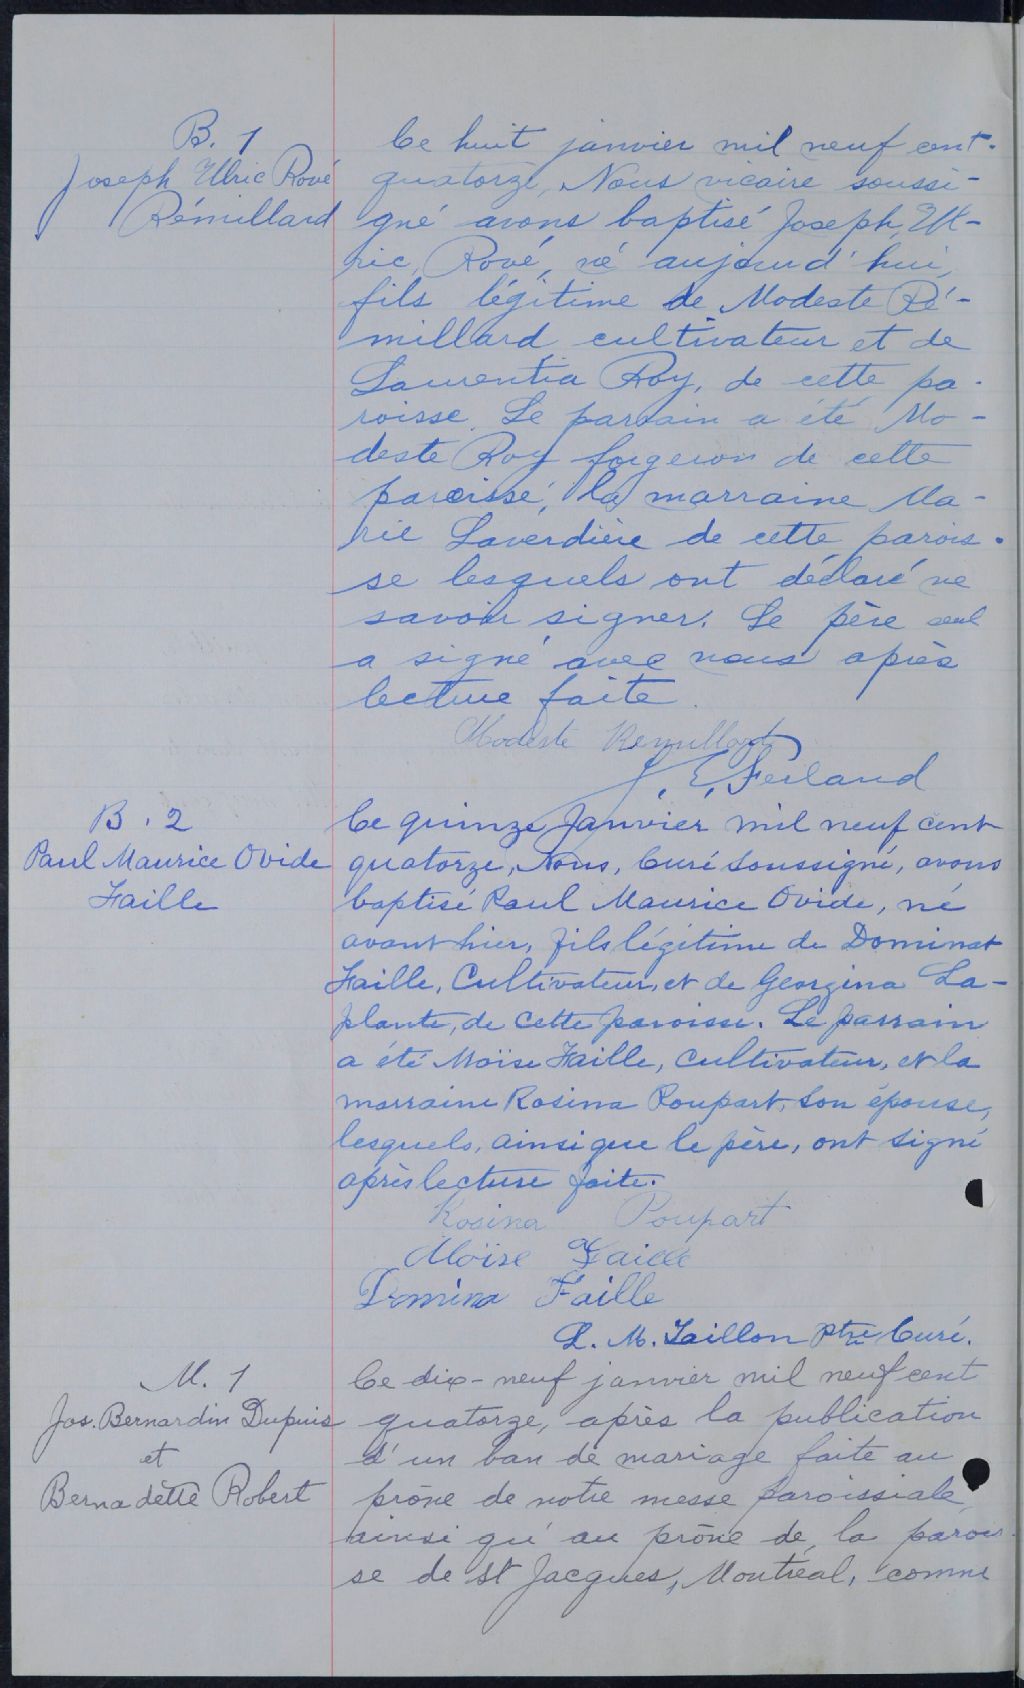 B. 1
Joseph Ulric Rové
Rémillard
Ce huit janvier mil neuf cent-
quatorze, Nous vicaire soussi-
gné avons baptisé Joseph, Ul-
ric, Rové, né aujourd'hui,
fils légitime de Modeste Ré-
millard cultivateur et de
Laurentia Roy, de cette pa-
roisse. Le parrain a été Mo-
deste Roy forgeron de cette
paroisse, la marraine Ma-
rie Laverdière de cette parois-
se lesquels ont déclaré ne
savoir signer. Le père seul
a signé avec nous après
lecture faite.
Modeste Remillard
J. E. Ferland
B. 2
Paul Maurice Ovide
Faille
Ce quinze Janvier mil neuf cent
quatorze, Nous, Curé soussigné, avons
baptisé Paul Maurice Ovide, né
avant hier, fils légitime de Dominat
Faille, Cultivateur, et de Georgina La-
plante, de cette paroisse. Le parrain
a été Moïse Faille, cultivateur, et la
marraine Rosina Poupart, son épouse,
lesquels, ainsi que le père, ont signé
après lecture faite.
Rosina Poupart
Moïse Faille
Domina Faille
L. M. Taillon Ptre Curé.
M. 1
Jos. Bernardin Dupuis
et
Bernadette Robert
Ce dix-neuf janvier mil neuf cent
quatorze, après la publication
d'un ban de mariage faite au
prône de notre messe paroissiale
ainsi qu'au prône de la parois-
se de St Jacques, Montréal, comme